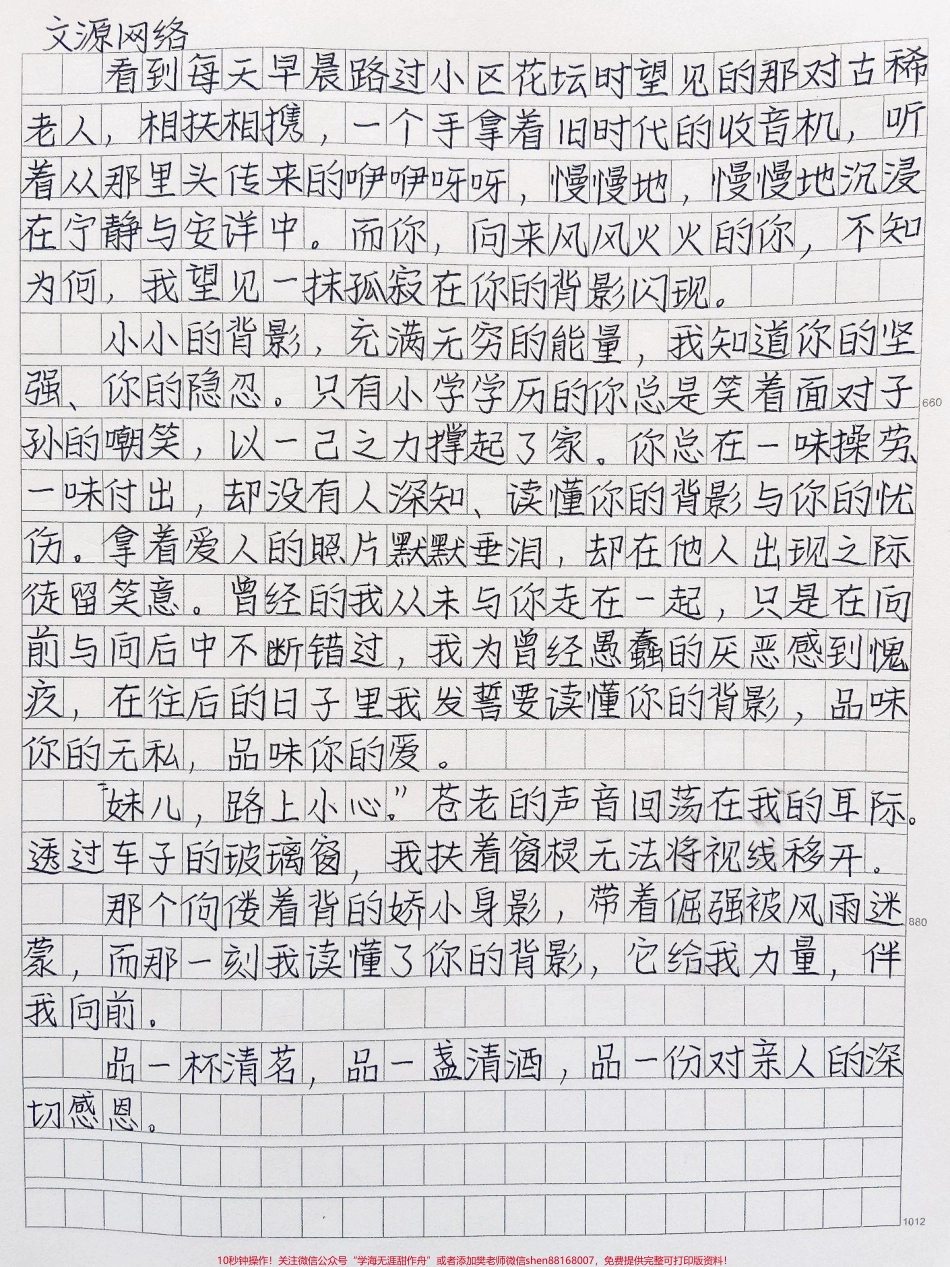 文源网络
看到每天早晨路过小区花坛时望见的那对古稀
老人，相扶相携，一个手拿着旧时代的收音机，听
着从那里头传来的咿咿呀呀，慢慢地，慢慢地沉浸
在宁静与安详中。而你，向来风风火火的你，不知
为何，我望见一抹孤寂在你的背影闪现。
小小的背影，充满无穷的能量，我知道你的坚
强、你的隐忍。只有小学学历的你总是笑着面对子
660
孙的嘲笑，以一己之力撑起了家。你总在一味操劳、
一味付出，却没有人深知、读懂你的背影与你的忧
伤。拿着爱人的照片默默垂泪，却在他人出现之际
徒留笑意。曾经的我从未与你走在一起，只是在向
前与向后中不断错过，我为曾经愚蠢的厌恶感到愧
疚，在往后的日子里我发誓要读懂你的背影，品味
你的无私，品味你的爱。
“妹儿，路上小心。”苍老的声音回荡在我的耳际。
透过车子的玻璃窗，我扶着窗棂无法将视线移开。
那个佝偻着背的娇小身影，带着倔强被风雨迷
880
蒙，而那一刻我读懂了你的背影，它给我力量，伴
我向前。
品一杯清茗，品一盏清酒，品一份对亲人的深
切感恩。
1012
10秒钟操作！关注微信公众号“学海无涯甜作舟”或者添加樊老师微信shen88168007，免费提供完整可打印版资料！